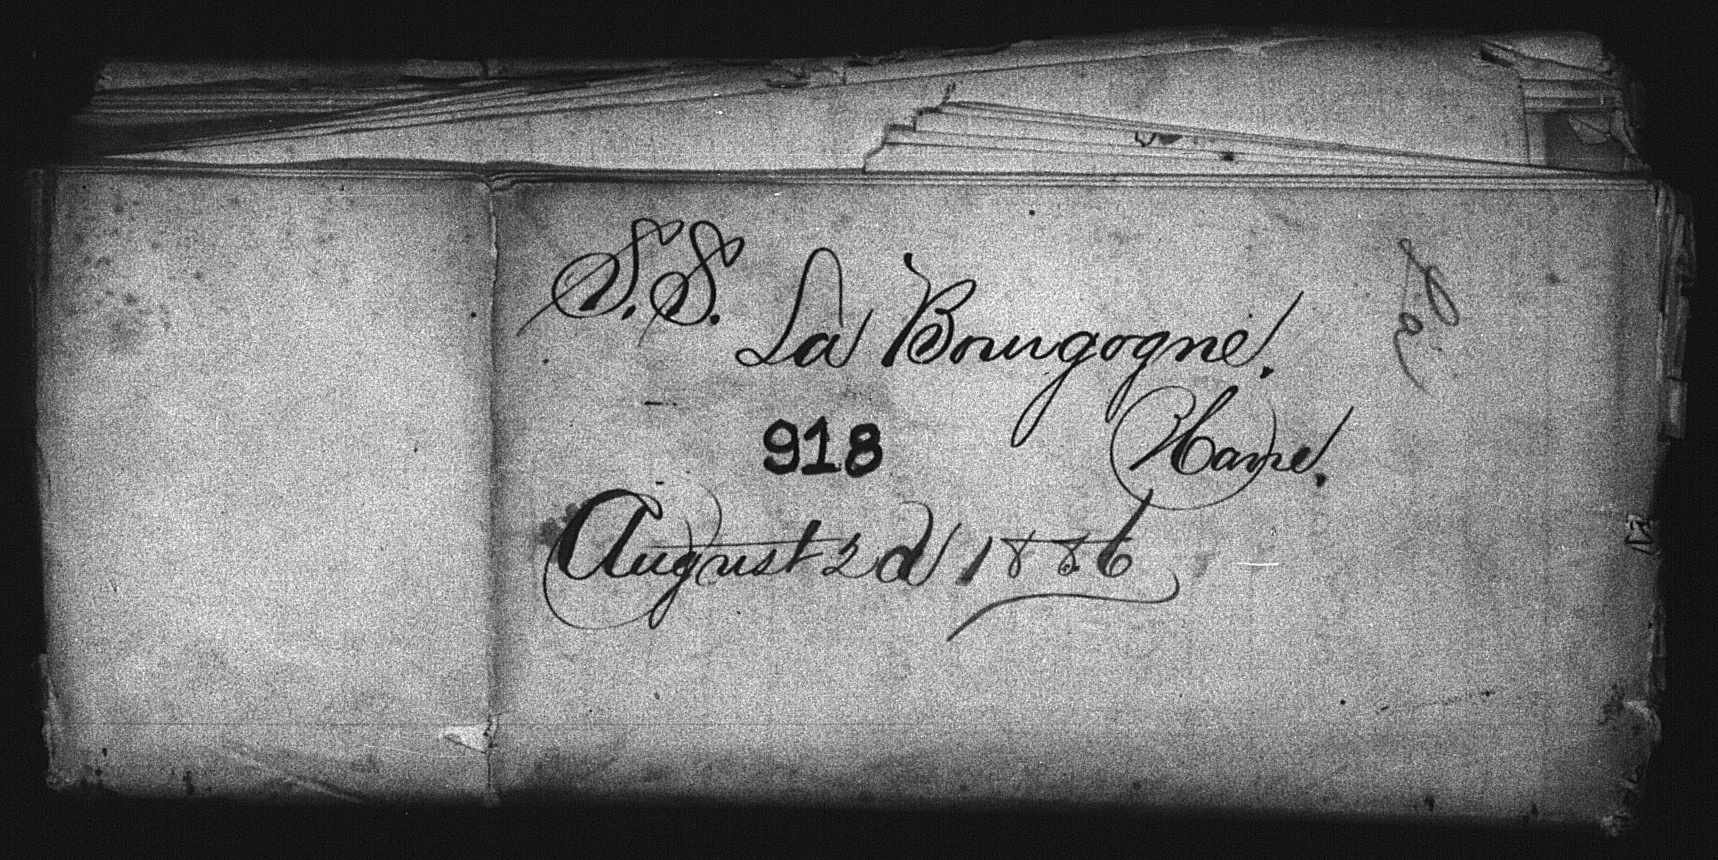 S.S. La Bourgogne.
918 Havre.
August 2d 1886